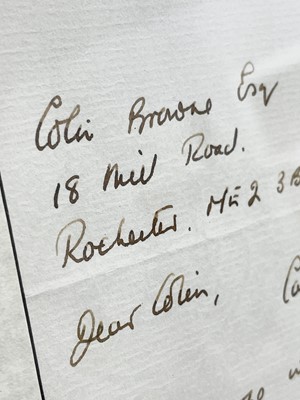 Colin Browne Esq
18 Mill Road.
Rochester. ME2 3B
Dear Colin,